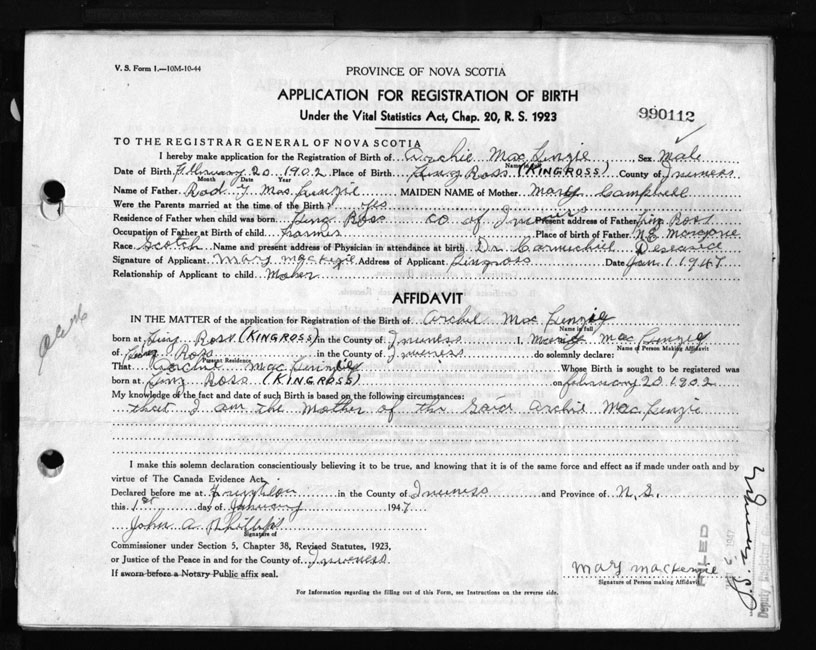 V. S. Form 1.—10M-10-44
PROVINCE OF NOVA SCOTIA
APPLICATION FOR REGISTRATION OF BIRTH
Under the Vital Statistics Act, Chap. 20, R. S. 1923
990112
TO THE REGISTRAR GENERAL OF NOVA SCOTIA
I hereby make application for the Registration of Birth of Archie MacKenzie Sex Male
Name in full
Date of Birth February 20 1902 Place of Birth King Ross (KINGROSS) County of Inverness
Month Date Year
Name of Father Rod. MacKenzie MAIDEN NAME of Mother Mary Campbell
Were the Parents married at the time of the Birth? yes
Residence of Father when child was born King Ross co of Present address of Father King Ross
Occupation of Father at Birth of child Farmer Place of birth of Father N E Margaree
Race Scotch Name and present address of Physician in attendance at birth Dr Carmichael
Signature of Applicant Mary Mackezie Address of Applicant Kingross Date Jan. 1 1947
Relationship of Applicant to child Mother
AFFIDAVIT
IN THE MATTER of the application for Registration of the Birth of Archie MacKenzie
Name in full
born at King Ross (KINGROSS) in the County of Inverness I, Mary MacKenzie
Name of Person Making Affidavit
of King Ross in the County of Inverness do solemnly declare:
Present Residence
That Archie MacKenzie Whose Birth is sought to be registered was
born at King Ross (KINGROSS) on february 20 1902
My knowledge of the fact and date of such Birth is based on the following circumstances:
that I am the Mother of the Said Archie MacKenzie
I make this solemn declaration conscientiously believing it to be true, and knowing that it is of the same force and effect as if made under oath and by
virtue of The Canada Evidence Act,
Declared before me at in the County of Inverness and Province of N. S.
this 1st day of January 1947
John A.
Signature of
Commissioner under Section 5, Chapter 38, Revised Statutes, 1923.
or Justice of the Peace in and for the County of Inverness
If sworn before a Notary Public affix seal.
Mary Mackenzie
Signature of Person making Affidavit
For Information regarding the filling out of this Form, see Instructions on the reverse side.
FILED
1947
Deputy Registrar